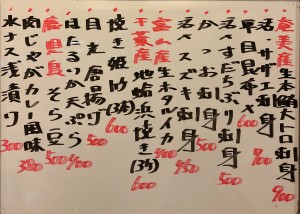 奄美産生本鮪大トロ刺身 900
活サザエ刺身 900
平目昆布〆 600
活さだち刺身 500
かつお刺身 450
活スズキ刺身
富山産生ホタルイカ 400
千葉産地蛤浜焼き(3ケ) 600
焼き姫竹(3本) 600
目光唐揚げ 500
ほたるいか天ぷら 500
鹿児島そら豆 400
肉じゃがカレー風味 380
水ナス浅漬り 300